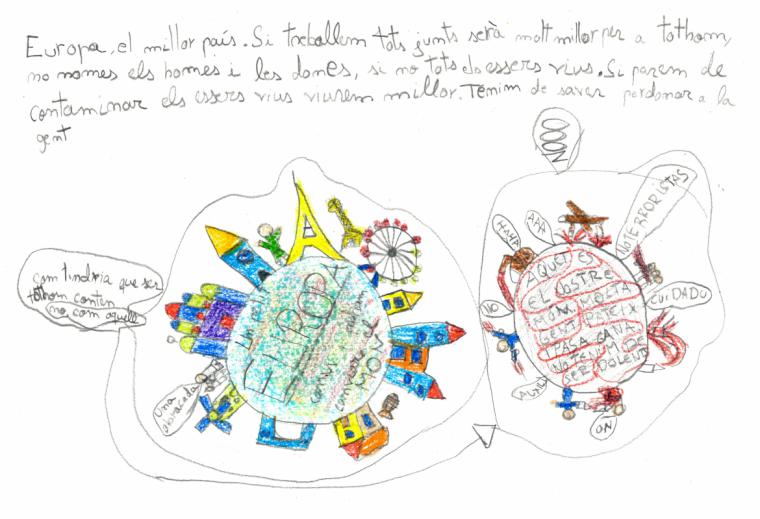 Europa, el millor país. Si treballem tots junts serà molt millor per a tothom,
no nomes els homes i les dones, si no tots els essers vius. Si parem de
contaminar els essers vius viurem millor. Temim de saver perdonar a la
gent
com tindria que ser
tothom conten
no com aquell
EUROPA
una
abraçada
OOOO
NO TERRORISTAS
AAA
HAHA
NO
CUIDADO
AQUET ES
EL NOSTRE
MON. MOLTA
GENT PATEIX
I PASA GANA
NO TENIM DE
SER DOLENTS
NO